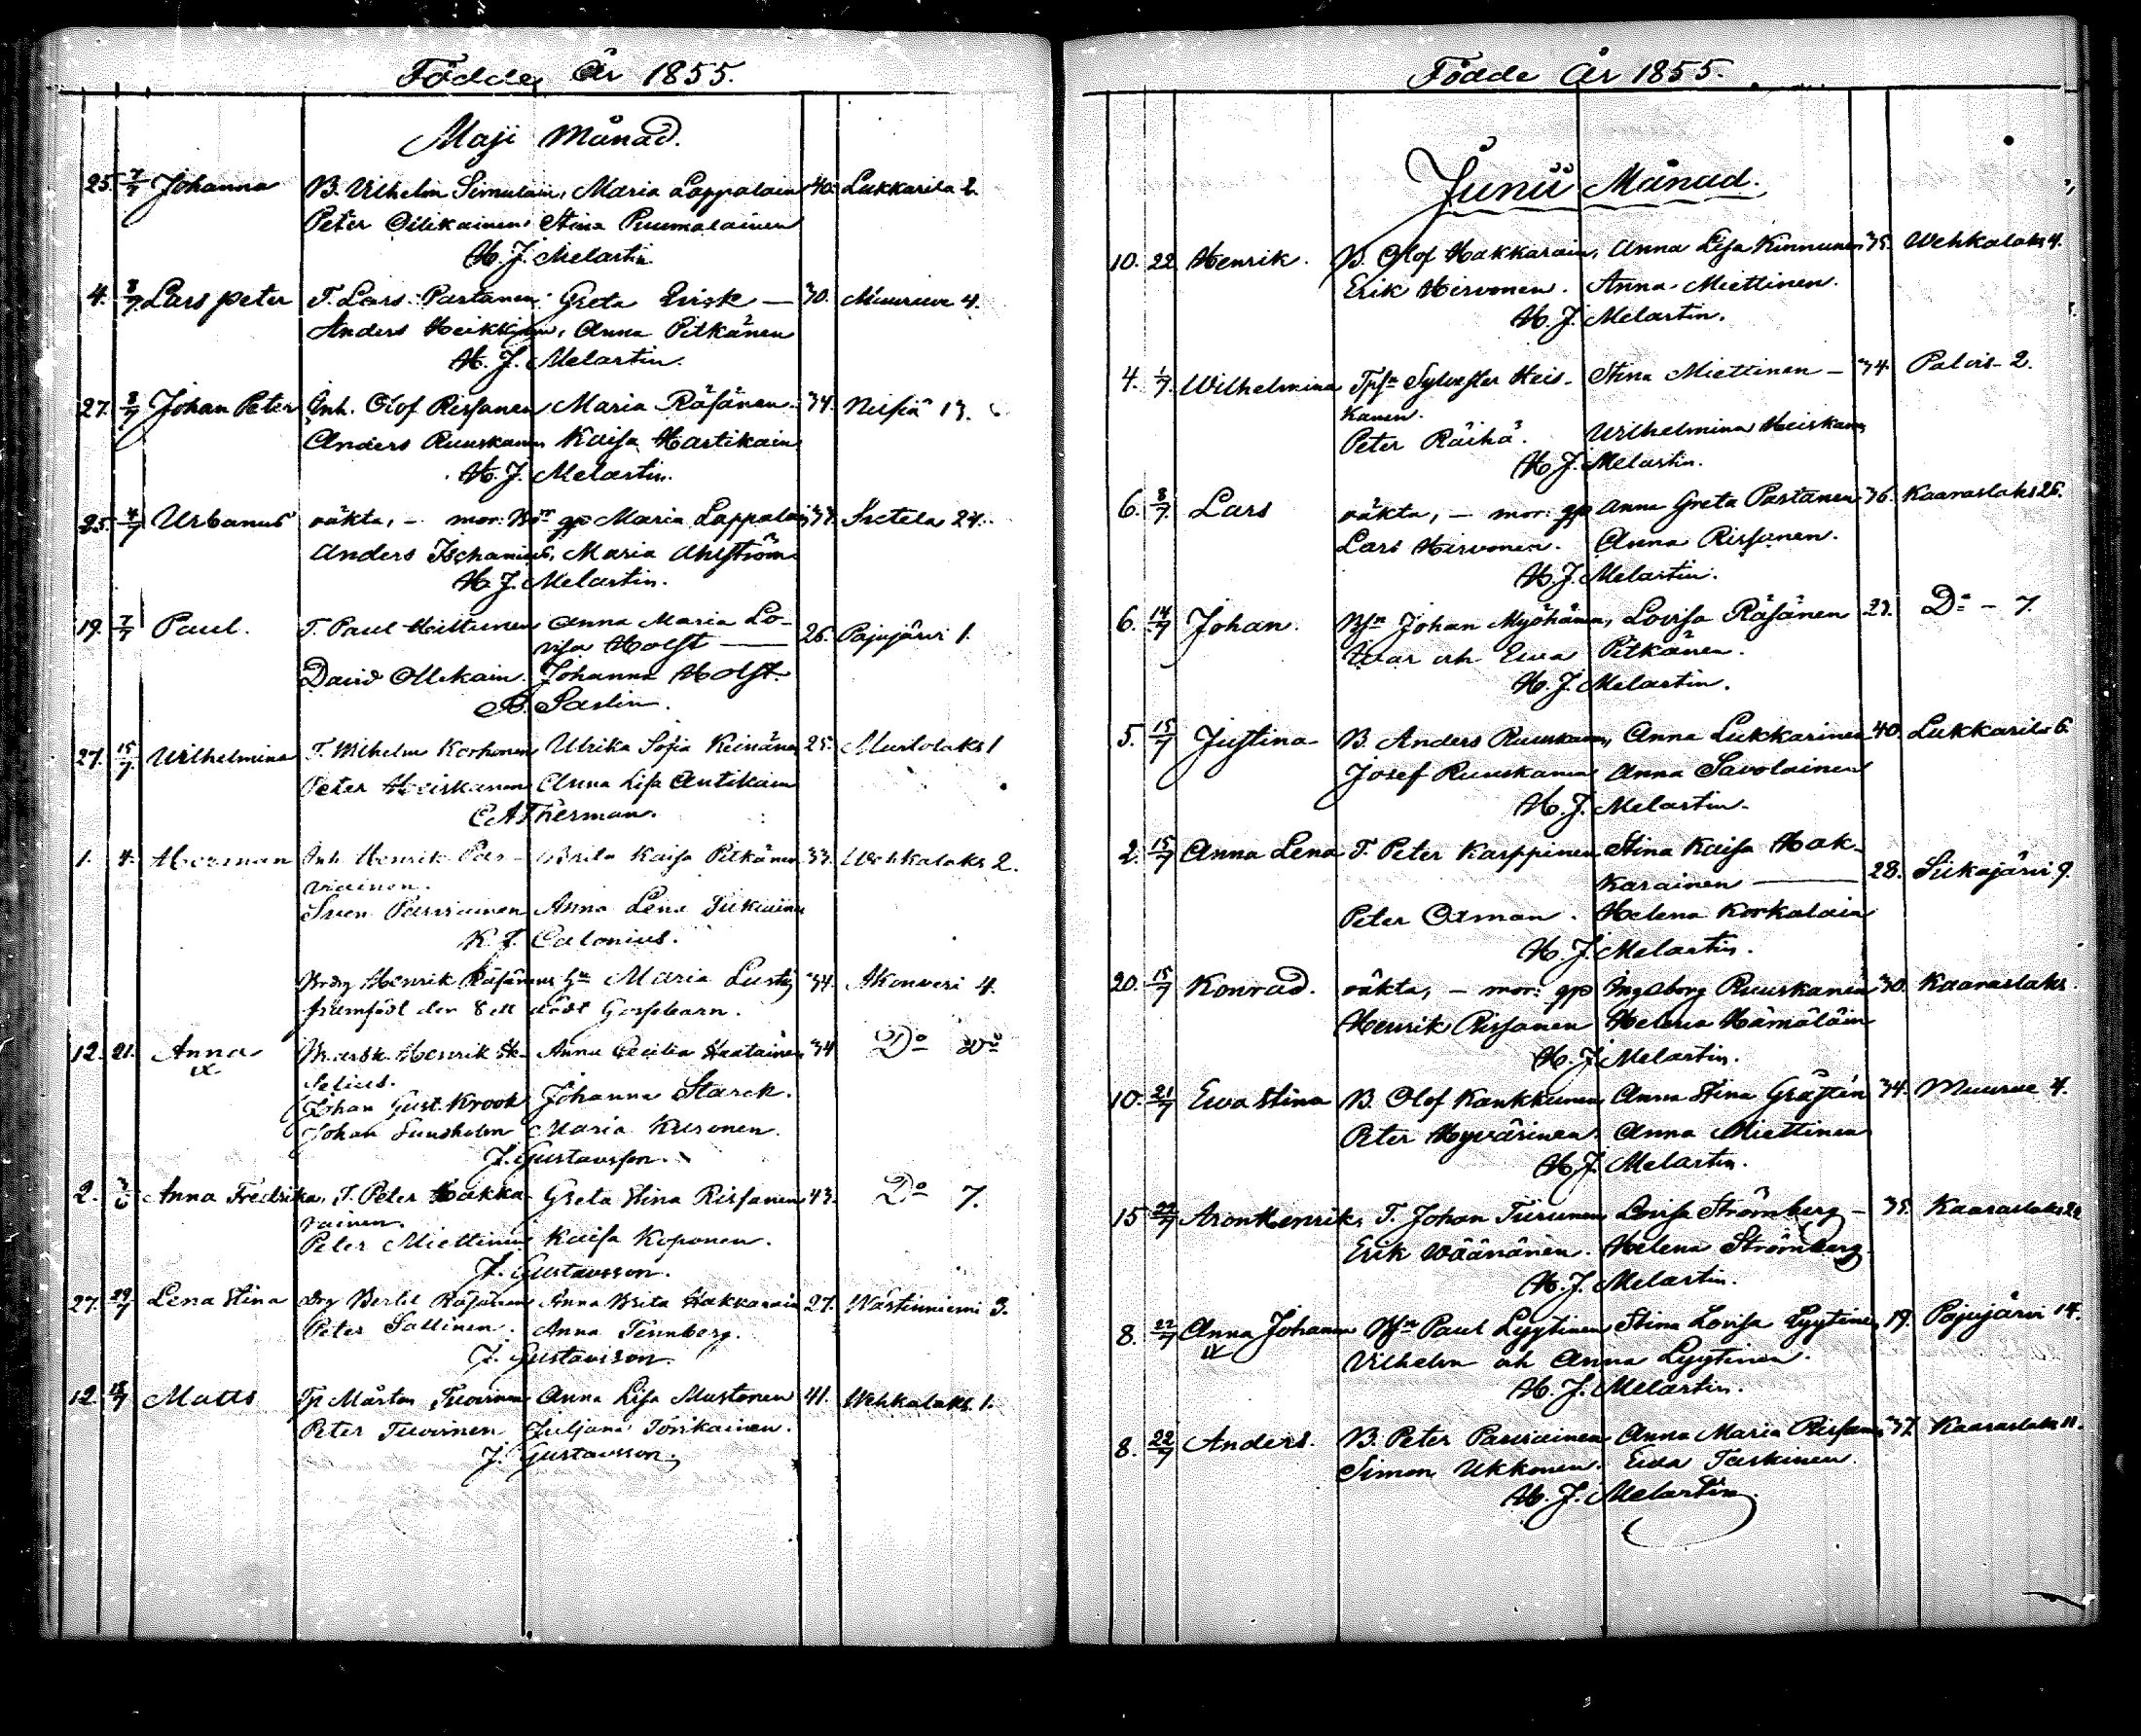 Födde År 1855.
Maji Månad.
25. 7/7 Johanna B. Vilhelm Simulain, Maria Lappalain 40. Lukkarila 2.
Peter Oilikainen, Stina Puumalainen
H. J. Melartin.
4. 8/7 Lars Peter T. Lars Partanen Greta Erisk — 30. Muuruve 4.
Anders Heikkinen, Anna Pitkänen
H. J. Melartin.
27. 8/7 Johan Peter Inh. Olof Rissanen Maria Räsänen 34. Nilsiä 13.
Anders Ruuskanen Kaisa Hartikain
H. J. Melartin.
25. 4/7 Urbanus oäkta, — mor: gp Maria Lappalain 37. Sretela 24.
Anders Maria Ahlström
H. J. Melartin.
19. 7/7 Paul. T. Paul Anna Maria Lo-
visa Holst — 26. Pajujärvi 1.
David Ollikain. Johanna Holst.
Saxlin.
27. 15/7 Wilhelmina T. Wilhelm Korhonen Ulrika Sofia Keinänen 25. Murtolaks 1
Peter Heiskanen Anna Lisa Antikain
C A Therman.
1. 4. Herman Inh Henrik Par- Brita Kaisa Pitkänen 33. Wehkalaks 2.
viainen.
Sven Parviainen Anna Lena Tiikainen
K. J. Calonius.
Henrik Räsänens Maria Lustig 34. Akonveri 4.
framfödt den 8 ett dödt Gossebarn.
12. 21. Anna Henrik Ak- Anna Cecilia Haatainen 34 Do Do
selius.
Johan Gust. Krook Johanna Starck.
Johan Sundholm Maria Kusonen.
J. Gustavsson.
2. Anna Fredrika, T. Peter Hakka- Greta Stina Rissanen 43. Do 7.
rainen.
Peter Miettinen Kaisa Koponen.
J. Gustavsson.
27. 29/7 Lena Stina Drg Bertil Räsänen Anna Brita Hakkarain 27. Västinniemi 3.
Peter Sallinen. Anna Tennberg.
J. Gustavsson.
12. Matts Tp Mårten Tuovinen Anna Lisa Mustonen 41. Wehkalaks. 1.
Peter Tuovinen Juljana
J. Gustavsson.
Födde År 1855.
Junii Månad.
10. 22 Henrik. B. Olof Hakkarain, Anna Lisa Kinnunen 35. Wehkalaks 4.
Erik Hirvonen. Anna Miettinen.
H. J. Melartin.
4. 1/7. Wilhelmina Sylvester Heis- Stina Miettinen — 34. Palois 2.
kanen.
Peter Räihä. Wilhelmina Heiskanen
H. J. Melartin.
6. 8/7. Lars oäkta, — mor: gp Anna Greta Partanen 36. Kaaraslaks 26.
Lars Hirvonen. Anna Rissanen.
H. J. Melartin.
6. 14/7 Johan. Johan Myöhänen, Lovisa Räsänen 27. Do — 7.
Ivar och Ewa Pitkänen.
H. J. Melartin.
5. 15/7 Justina B. Anders Ruuskanen, Anna Lukkarinen 40. Lukkarila 6.
Josef Ruuskanen Anna Savolainen
H. J. Melartin.
2 15/7 Anna Lena T. Peter Karppinen Stina Kaisa Hak-
karainen — 28. Siikajärvi 9.
Peter Oxman. Helena Korkalain
H. J. Melartin.
20. 15/7 Konrad. oäkta, — mor: gp Ingeborg Ruuskanen 30. Kaaraslaks.
Henrik Rissanen Helena Hämäläin
H. J. Melartin.
10. 21/7 Ewa Stina B. Olof Kankkunen Anna Stina Grästén 34. Muuruve 4.
Peter Hyvärinen Anna Miettinen
H. J. Melartin.
15 22/7 Aron Henrik, T. Johan Turunen Lovisa Strömberg — 35. Kaaraslaks 22
Erik Wäänänen. Helena Strömberg.
H. J. Melartin.
8. 22/7 Anna Johanna Paul Lyytinen Stina Lovisa Lyytinen 19. Pajujärvi 14.
Vilhelm och Anna Lyytinen.
H. J. Melartin.
8. 22/7 Anders. B. Peter Parviainen Anna Maria Rissanen 37. Kaaraslaks 11.
Simon Ukkonen. Ewa Taskinen.
H. J. Melartin.